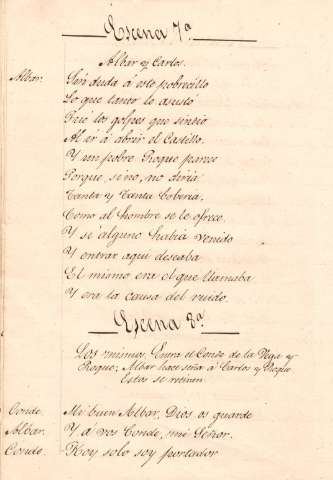 Escena 7ª
Albar y Carlos.
Albar. Sin duda á este pobrecillo
Lo que tanto le asustó
Fué los golpes que sintió
Al ir á abrir el Castillo.
Y un pobre Roque parece
Porque, sino, no diria
Tanta y tanta boberia,
Como al hombre se le ofrece.
Y si alguno habia venido
Y entrar aqui deseaba
El mismo era el que llamaba
Y era la causa del ruido.
Escena 8ª
Los mismos, Entra el Conde de la Vega y
Roque; Albar hace señá á Carlos y Roque
Estos se retiran
Conde. Mi buen Albar, Dios os guarde
Albar. Y á vos Conde, mi Señor.
Conde. Hoy solo soy portador